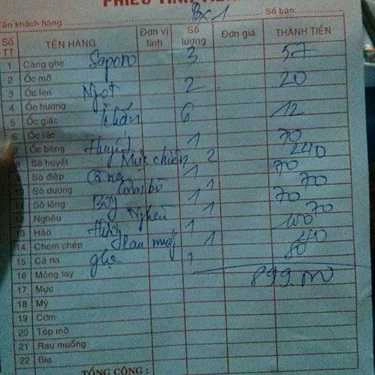 PHIẾU TÍNH TIỀN
Tên khách hàng: Bx1 Số bàn:
Số TT TÊN HÀNG Đơn vị tính Số lượng Đơn giá THÀNH TIỀN
1 Càng ghẹ Saporo 3 57
2 Ốc mỡ
3 Ốc len Ngọt 2 20
4 Ốc hương
5 Ốc giác khăn 6 12
6 Ốc tỏi
7 Ốc bông Huyết 1 70
8 Sò huyết Mực chiên 2 240
9 Sò điệp 1 70
10 Sò dương 1 70
11 Sò lông 1 70
12 Nghêu Nghêu 1 70
13 Hào 1 100
14 Chem chép Rau muống 1 40
15 Cà na ghẹ 1 80
16 Móng tay 899.000
17 Mực
18 Mỳ
19 Cơm
20 Tóp mỡ
21 Rau muống
22 Gia
TỔNG CỘNG: